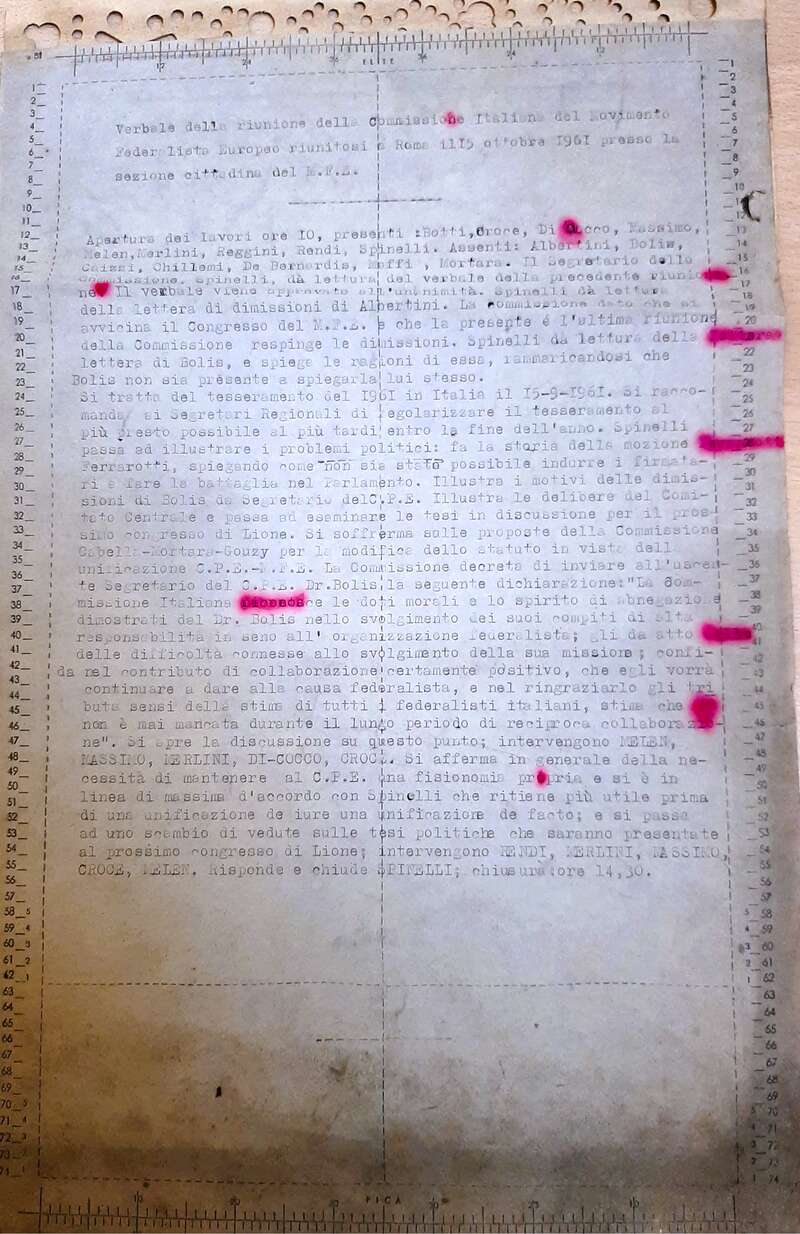 Verbale della riunione della Commissione Italiana del Movimento
Federalista Europeo riunitosi a Roma il15 ottobre 1961 presso la
sezione cittadina del M.F.E.
Apertura dei lavori ore 10, presenti :Botti,Croce, Di Cocco, Massimo,
Melen,Merlini, Reggini, Rendi, Spinelli. Assenti: Albertini, Bolis,
Chillemi, De Bernardis, Maffi , Mortara. Il Segretario della
Commissione, Spinelli, dà lettura del verbale della precedente riunio
ne. Il verbale viene approvato all'unanimità. Spinelli dà lettura
della lettera di dimissioni di Albertini. La Commissione dato che si
avvicina il Congresso del M.F.E. e che la presente é l'ultima riunione
della Commissione respinge le dimissioni. Spinelli da lettura della
lettera di Bolis, e spiega le ragioni di essa, rammaricandosi che
Bolis non sia presente a spiegarla lui stesso.
Si tratta del tesseramento del 1961 in Italia il 15-9-1961. Si racco-
manda ai Segretari Regionali di regolarizzare il tesseramento al
più presto possibile al più tardi entro la fine dell'anno. Spinelli
passa ad illustrare i problemi politici: fa la storia della mozione
Ferrarotti, spiegando come non sia stato possibile indurre i firmata-
ri a fare la battaglia nel Parlamento. Illustra i motivi delle dimis-
sioni di Bolis da Segretario delC.P.E. Illustra le delibere del Comi-
tato Centrale e passa ad esaminare le tesi in discussione per il pros-
simo congresso di Lione. Si sofferma sulle proposte della Commissione
Cabella-Mortara-Gouzy per la modifica dello statuto in vista dell
unificazione C.P.E.-M.F.E. La Commissione decreta di inviare all'uscen-
te Segretario del C.P.E. Dr.Bolis la seguente dichiarazione:"La Com-
missione Italiana riconosce le doti morali e lo spirito di abnegazione
dimostrati dal Dr. Bolis nello svolgimento dei suoi compiti di alta
responsabilità in seno all' organizzazione federalista; gli da atto
delle difficoltà connesse allo svolgimento della sua missione; confi-
da nel contributo di collaborazione certamente positivo, che egli vorrà
continuare a dare alla causa federalista, e nel ringraziarlo gli tri
buta sensi della stima di tutti i federalisti italiani, stima che
non è mai mancata durante il lungo periodo di reciproca collaborazio-
ne". Si apre la discussione su questo punto; intervengono MELEN,
MASSIMO, MERLINI, DI-COCCO, CROCE. Si afferma in generale della ne-
cessità di mantenere al C.P.E. una fisionomia propria e si è in
linea di massima d'accordo con Spinelli che ritiene più utile prima
di una unificazione de iure una unificazione de facto; e si passa
ad uno scambio di vedute sulle tesi politiche che saranno presentate
al prossimo congresso di Lione; intervengono RENDI, MERLINI, MASSIMO,
CROCE, MELEN. Risponde e chiude SPINELLI; chiusura ore 14,30.